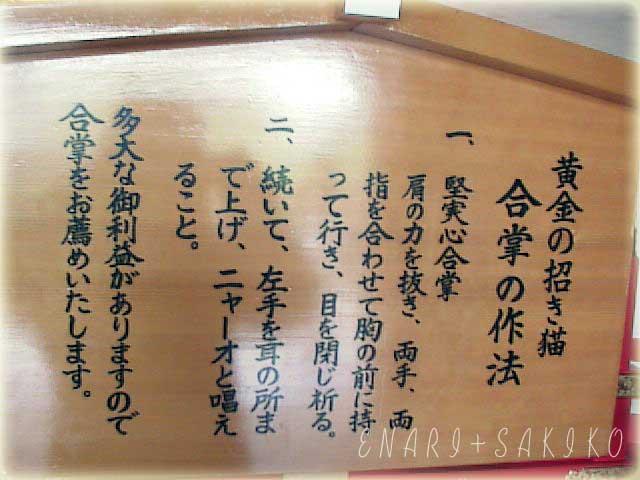 黄金の招き猫
合掌の作法
一、堅実心合掌
肩の力を抜き、両手、両
指を合わせて胸の前に持
って行き、目を閉じ祈る。
二、続いて、左手を耳の所ま
で上げ、ニャーオと唱え
ること。
多大な御利益がありますので
合掌をお薦めいたします。
ENARI+SAKIKO